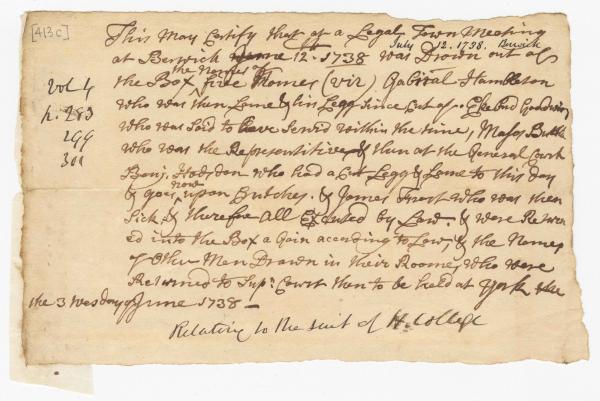 [413c]
This May Certify that at a Legal Town Meeting
July 12. 1738. Berwick
at Berwick June 12th 1738 was Drawn out of
the Names of
the Box five Names (viz) Gabriel Hambleton
vol 4
who was then Lame & his Legg Since Cut of. Goodwin
p. 283
who was Said to have Serv'd within the time, Moses Butler
299
who was the Representitive & then at the General Court
301
Benj. Hodsdon who had a Cut Legg & Lame to this day
now
& goes upon Crutches. & James Frost who was then
Sick & therefore All Excused by Law. & were Return
ed into the Box a Gain according to Law, & the Names
of Other Men Drawn in their Roome, who were
Returned to Supr. Court then to be held at York the
the 3 Wesday of June 1738 —
Relating to the suit of H. College